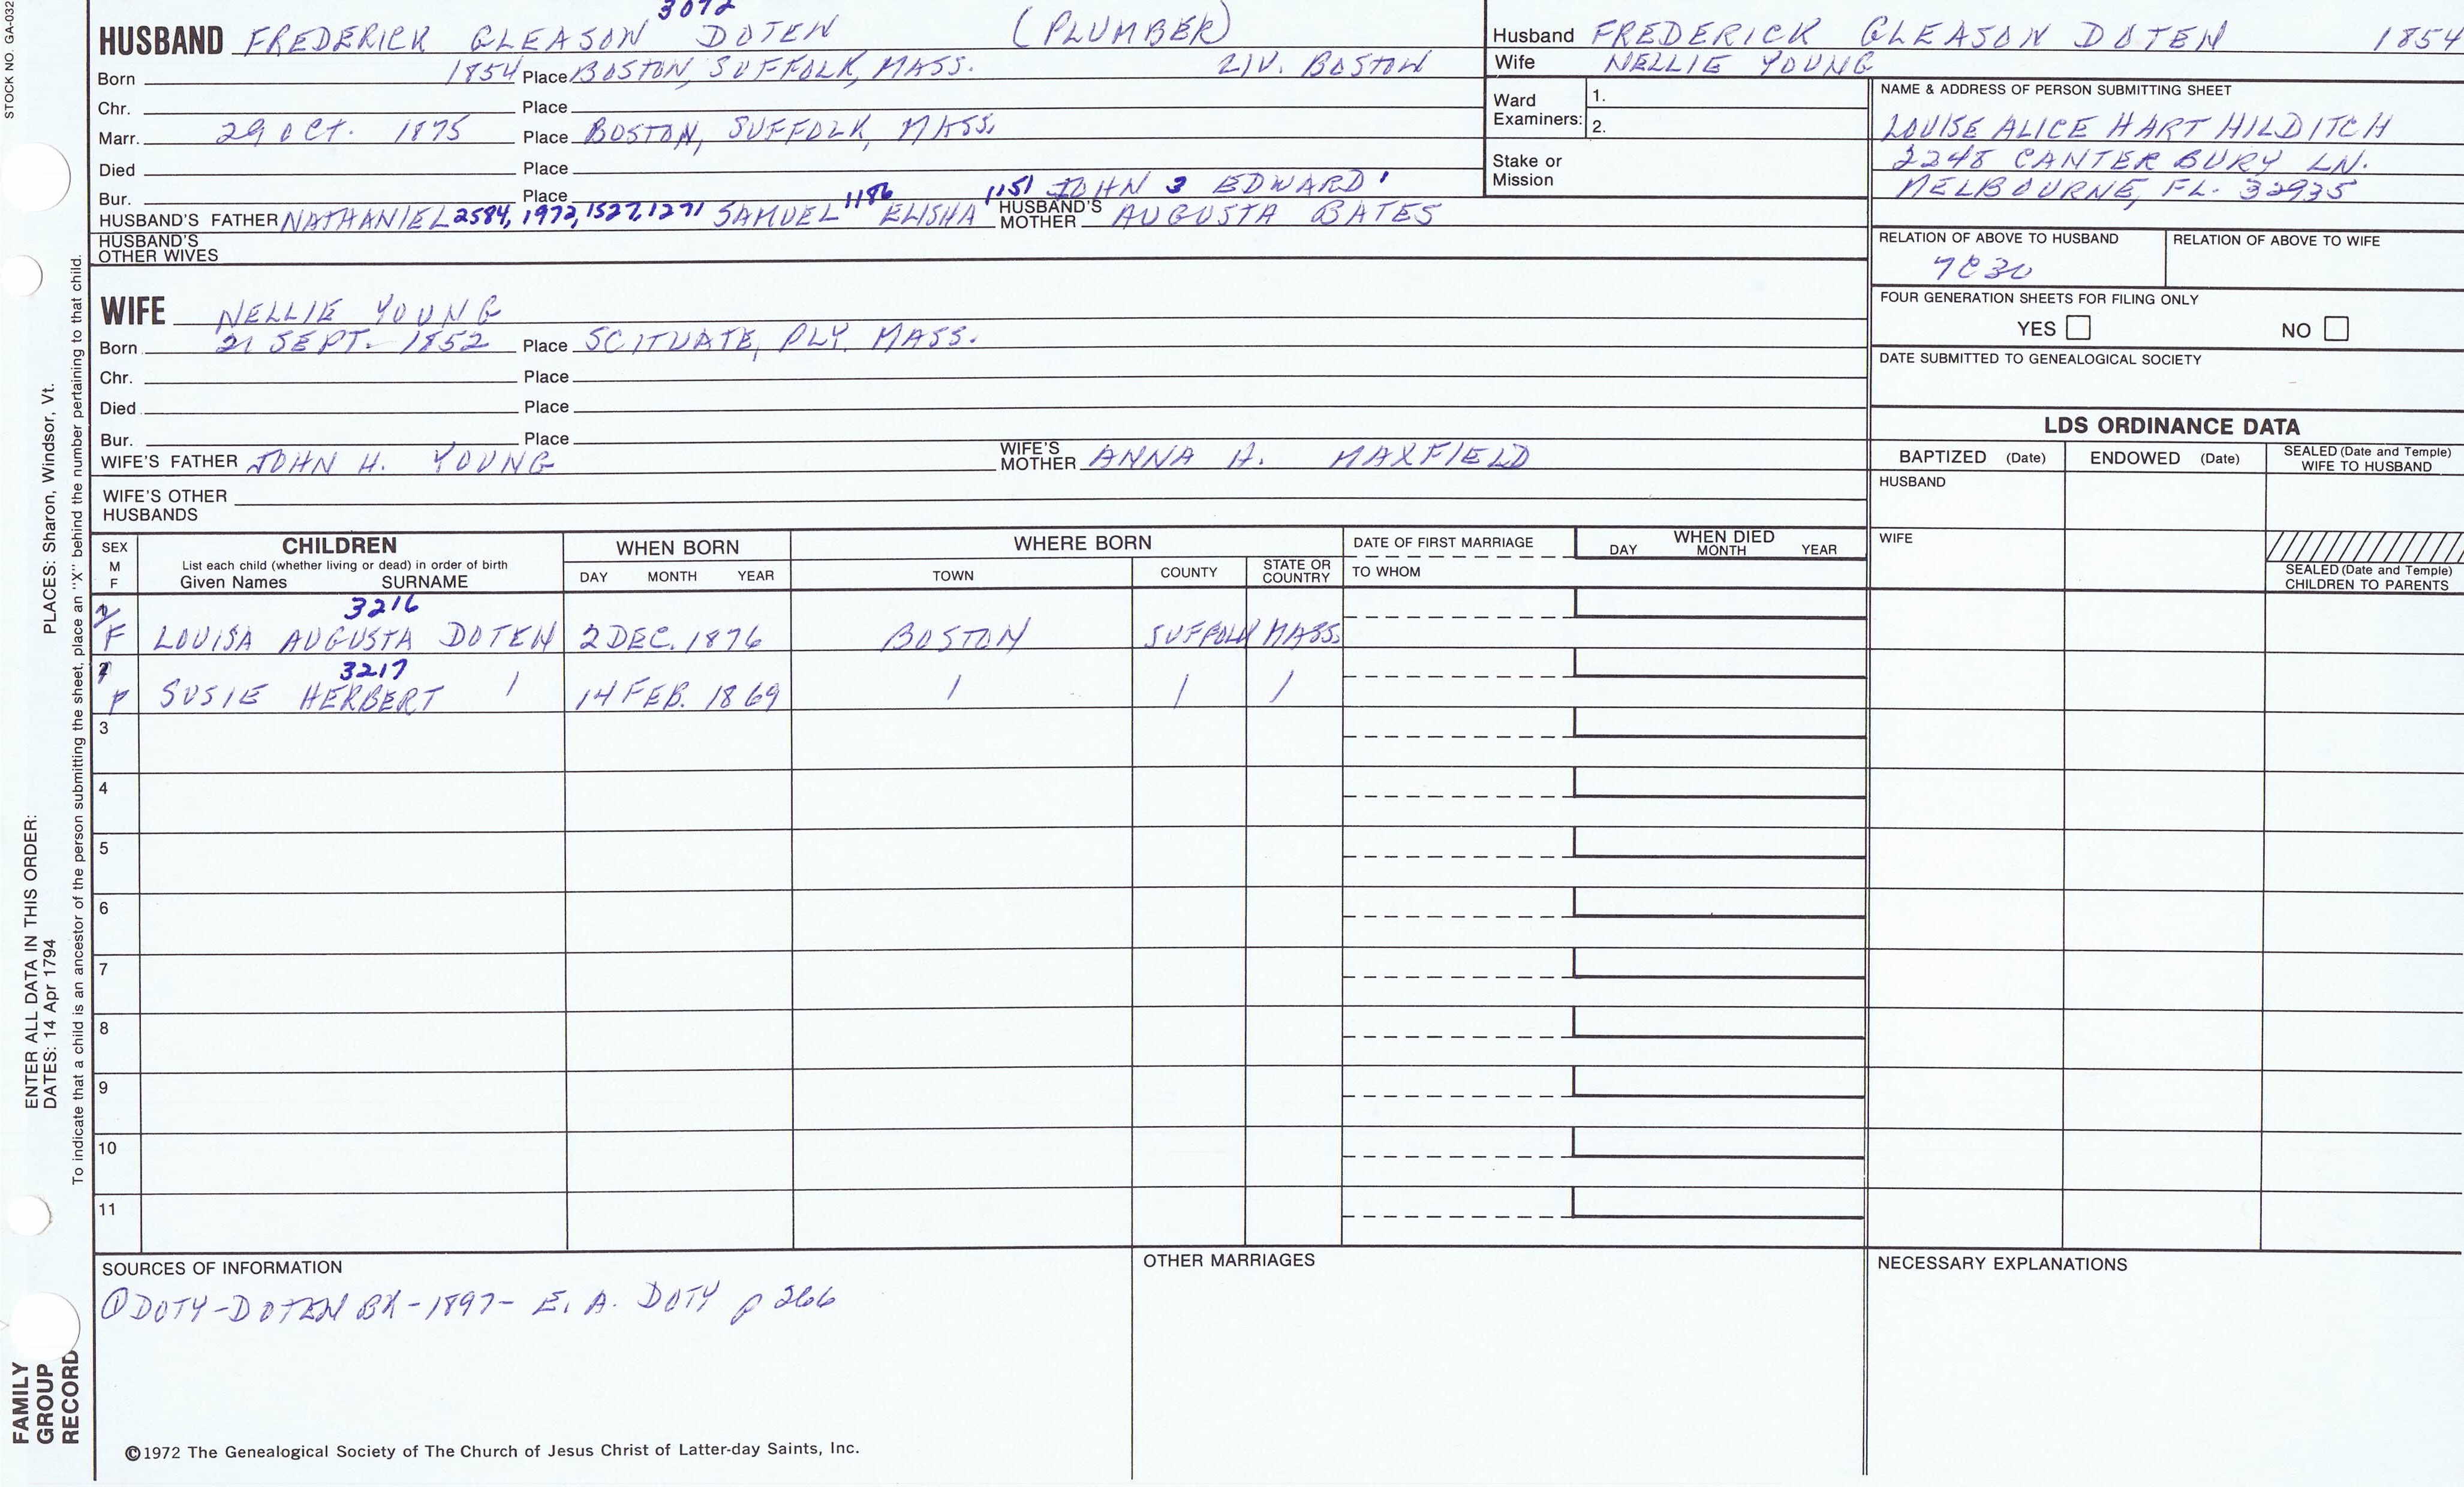 STOCK NO. GA-032
3072
HUSBAND FREDERICK GLEASON DOTEN (PLUMBER)
Born 1854 Place BOSTON, SUFFOLK, MASS. LIV. BOSTON
Chr. Place
Marr. 29 OCT. 1875 Place BOSTON, SUFFOLK, MASS.
Died Place
Bur. Place
HUSBAND'S FATHER NATHANIEL 2584, 1972, 1527, 1271 SAMUEL 1186 ELISHA 1151 JOHN 3 EDWARD 1
HUSBAND'S MOTHER AUGUSTA BATES
HUSBAND'S OTHER WIVES
WIFE NELLIE YOUNG
Born 21 SEPT. 1852 Place SCITUATE, PLY. MASS.
Chr. Place
Died Place
Bur. Place
WIFE'S FATHER JOHN H. YOUNG WIFE'S MOTHER ANNA A. MAXFIELD
WIFE'S OTHER HUSBANDS
Husband FREDERICK GLEASON DOTEN 1854
Wife NELLIE YOUNG
Ward Examiners: 1.
2.
Stake or Mission
NAME & ADDRESS OF PERSON SUBMITTING SHEET
LOUISE ALICE HART HILDITCH
2248 CANTERBURY LN.
MELBOURNE, FL. 32935
RELATION OF ABOVE TO HUSBAND RELATION OF ABOVE TO WIFE
7C3U
FOUR GENERATION SHEETS FOR FILING ONLY
YES NO
DATE SUBMITTED TO GENEALOGICAL SOCIETY
LDS ORDINANCE DATA
BAPTIZED (Date) ENDOWED (Date) SEALED (Date and Temple) WIFE TO HUSBAND
HUSBAND
WIFE
SEALED (Date and Temple) CHILDREN TO PARENTS
SEX M F
CHILDREN
List each child (whether living or dead) in order of birth
Given Names SURNAME
WHEN BORN
DAY MONTH YEAR
WHERE BORN
TOWN COUNTY STATE OR COUNTRY
DATE OF FIRST MARRIAGE
TO WHOM
WHEN DIED
DAY MONTH YEAR
3216
2 F LOUISA AUGUSTA DOTEN 2 DEC. 1876 BOSTON SUFFOLK MASS.
3217
1 F SUSIE HERBERT / 14 FEB. 1869 / / /
3
4
5
6
7
8
9
10
11
SOURCES OF INFORMATION
① DOTY-DOTEN BK-1897- E. A. DOTY p 266
OTHER MARRIAGES
NECESSARY EXPLANATIONS
©1972 The Genealogical Society of The Church of Jesus Christ of Latter-day Saints, Inc.
ENTER ALL DATA IN THIS ORDER:
DATES: 14 Apr 1794 PLACES: Sharon, Windsor, Vt.
To indicate that a child is an ancestor of the person submitting the sheet, place an "X" behind the number pertaining to that child.
FAMILY
GROUP
RECORD